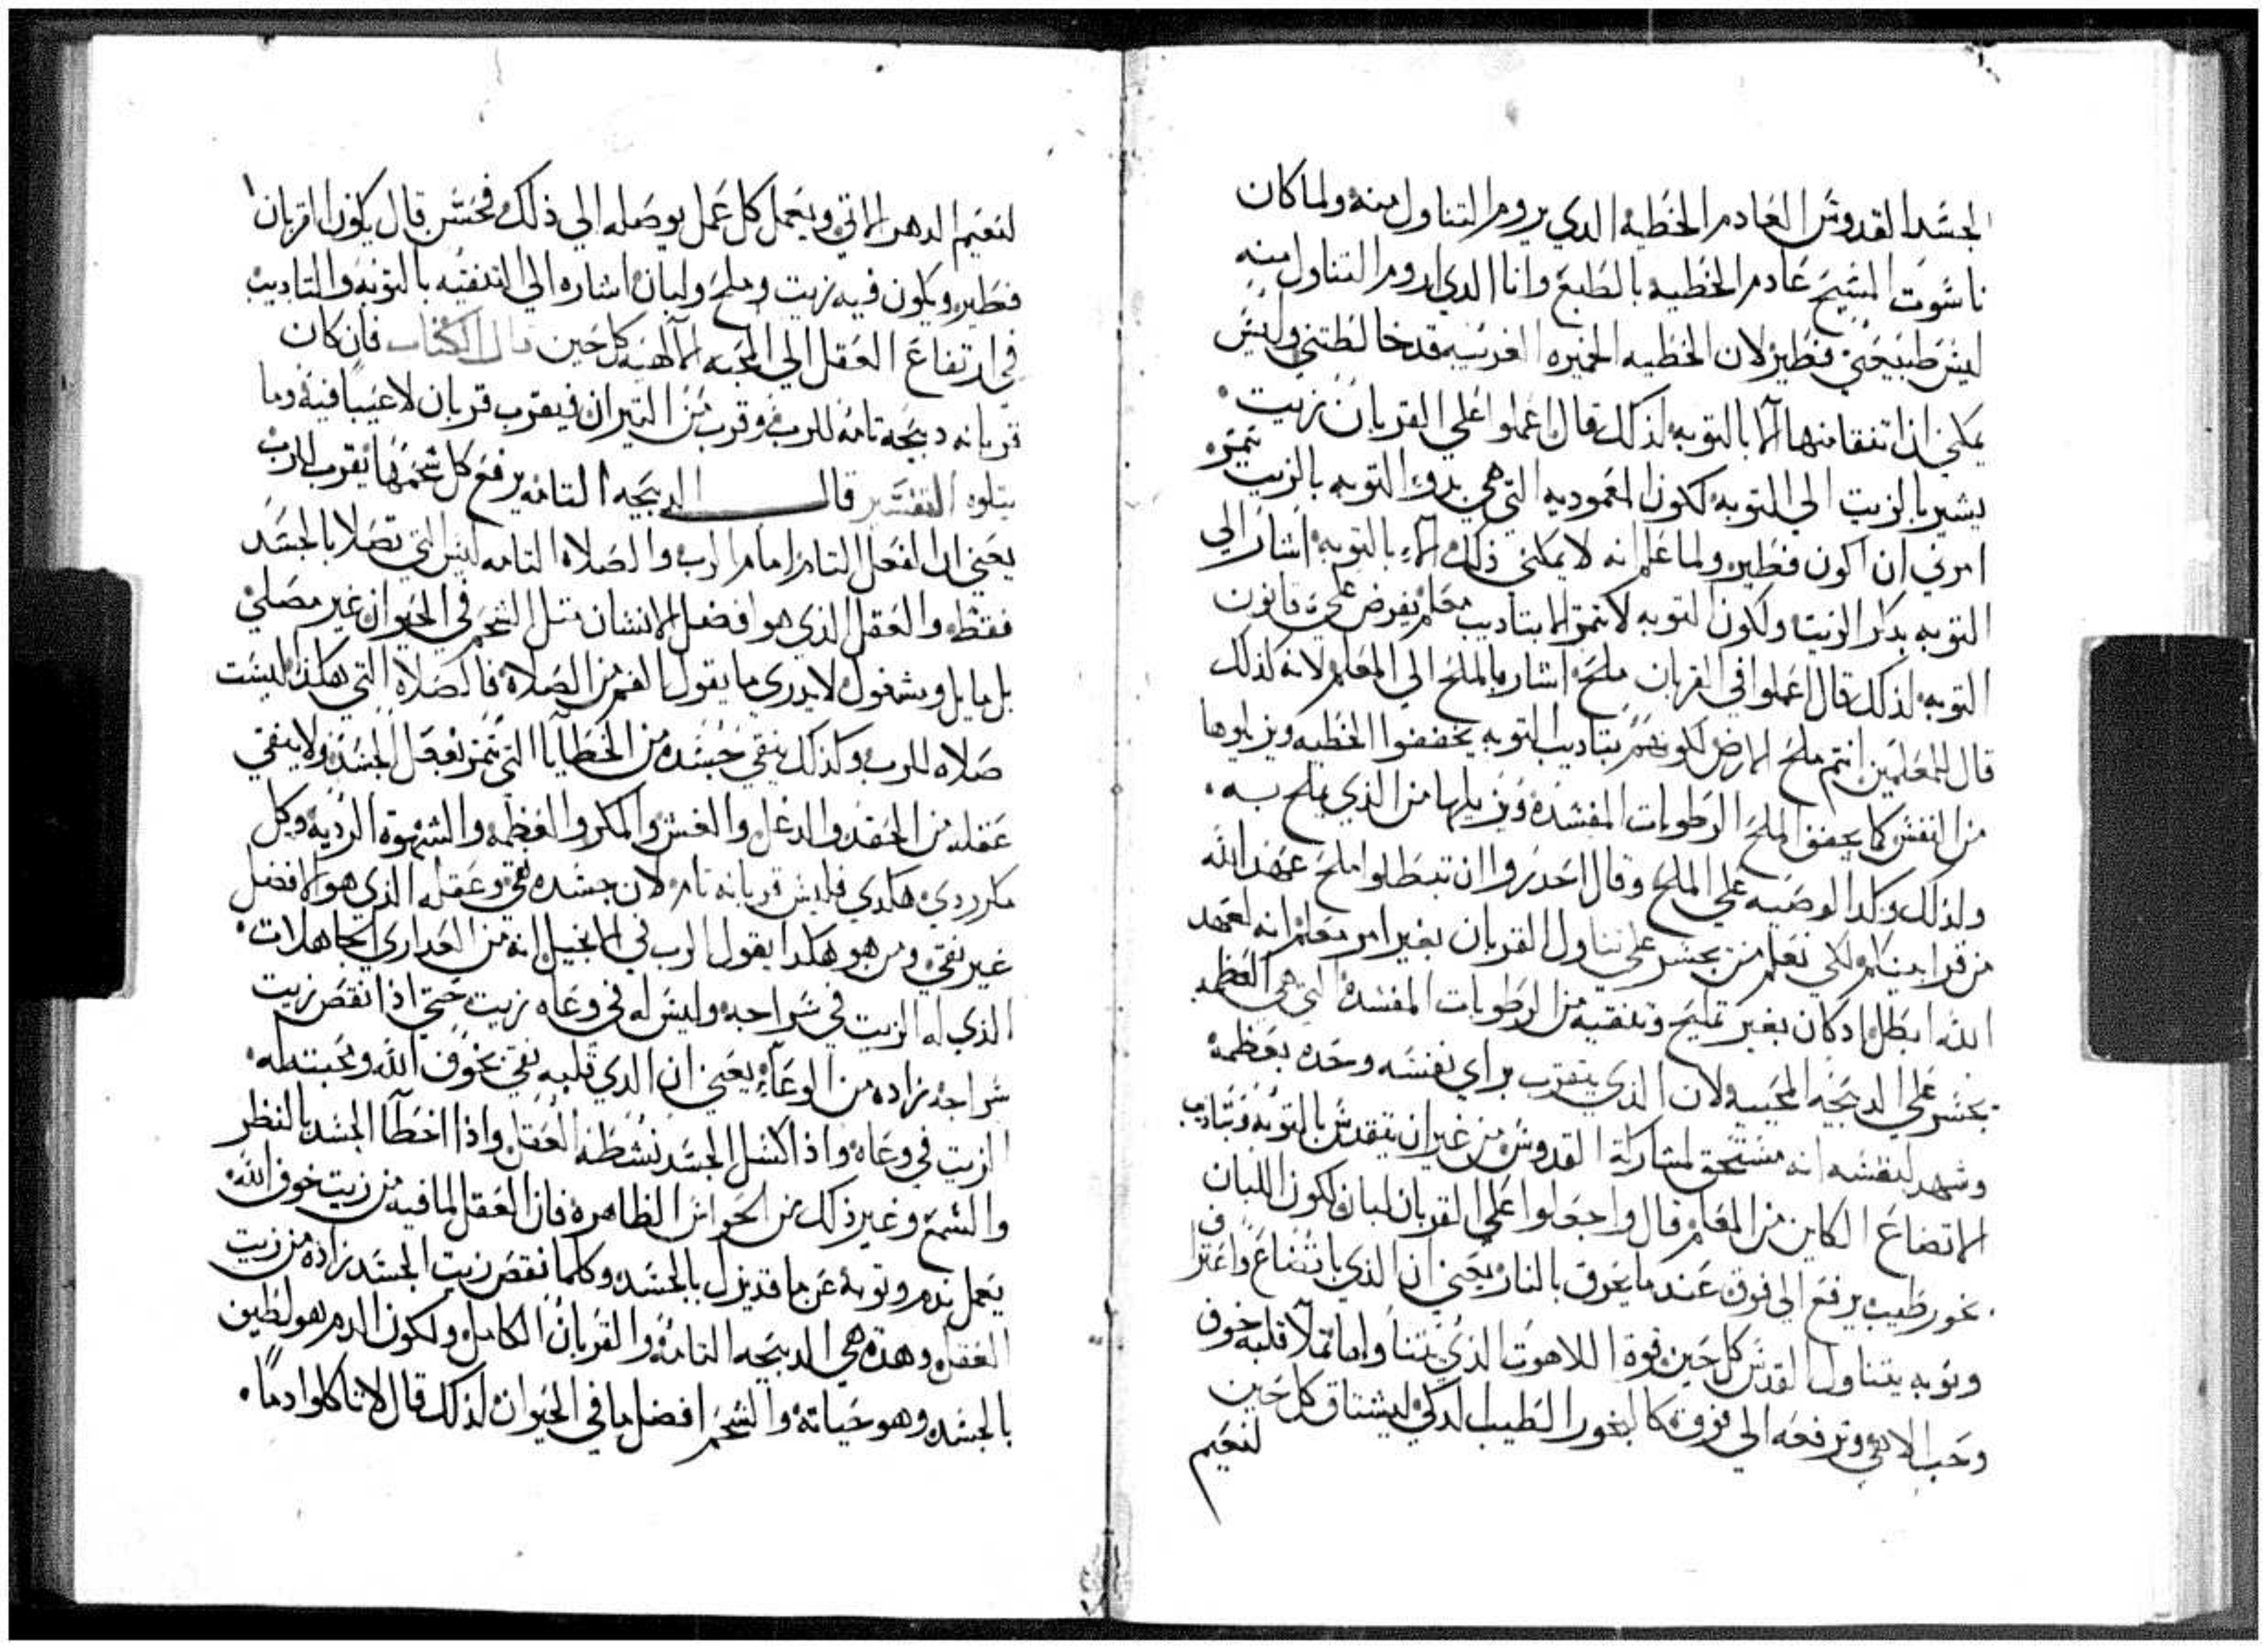 الجسد القدوس العادم الخطيه الدي يروم التناول منه ولما كان
ناسوت المسيح عادم الخطيه بالطبع وانا الدي اروم التناول منه
ليس طبيعتي فطير لان الخطيه الخميره الغريبه قد خالطتني وليس
يمكنني ان اتنقا منها الا بالتوبه لذلك قال اعملوا علي القربان زيت
يشير بالزيت الي التوبه لكون المعموديه التي هي بدو التوبه بالزيت تتم
امرني ان اكون فطير ولما علم انه لا يمكنني ذلك الا بالتوبه اشار الي
التوبه بدكر الزيت ولكون التوبه لا تتم الا بتاديب معلم يفرض علي قانون
التوبه لذلك قال اعملوا في القربان ملح اشار بالملح الي المعلم لانه كذلك
قال للمعلمين انتم ملح الارض لكونهم بتاديب التوبه يجففوا الخطيه ويزيلوها
من النفس كما يجفف الملح الرطوبات المفسده ويزيلها من الذي يملح به
ولذلك وكد الوصيه علي الملح وقال احدروا ان تبطلوا ملح عهد الله
من قرابينكم ولكي نعلم من يجسر علي تناول القربان بغير امر معلم انه لعهد
الله ابطل اد كان بغير تمليح وتنقيه من الرطوبات المفسده التي هي العظمه
يجسر علي الدبيحه المحييه ولان الذي يتقرب براي نفسه وحده بعظمة
وشهد لنفسه انه مستحق لمشاركة القدوس من غير ان يتقدس بالتوبه وبتاديب
الاتضاع الكاين من المعلم قال واجعلوا علي القربان لبان لكون اللبان
بخور طيب يرفع الي فوق عند ما يحرق بالنار يعني ان الذي باتضاع واعتراف
وتوبه يتناول القدس كل حين قوة اللاهوت الذي يتناولها تملا قلبه خوف
وحب الاهي وترفعه الي فوق كالبخور الطيب الدكي ليشتاق كل حين
لنعيم
لنعيم الدهر الاتي ويعمل كل عمل يوصله الي ذلك فحسن قال يكون القربان
فطير ويكون فيه زيت وملح ولبان اشاره الي التنقيه بالتوبه والتاديب
في ارتفاع العقل الي المحبه الالهيه كل حين قال الكتاب فان كان
قربانه دبيحه تامه للرب وقرب من التيران فيقرب قربان لا عيبا فيه وما
يتلوه التفسير قال الدبيحه التامه يرفع كل شحمها يقرب للرب
يعني ان الفعل التام امام الرب والصلاه التامه ليس التي تصلا بالجسد
فقط والعقل الذي هو افضل الانسان متل الشحم في الحيوان غير مصلي
بل مايل ومشغول لا يدري ما يقول الفم من الصلاة فالصلاه التي هكذا ليست
صلاه للرب وكذلك ينقي جسده من الخطايا التي تتم بفعل الجسد ولا ينقي
عقله من الحقد والدغل والغش والمكر والعظمه والشهوة الرديه وكل
مكر ردي هكدي فليس قربانه تام لان جسده نقي وعقله الذي هو الافضل
غير نقي ومن هو هكدا يقول الرب في الانجيل انه من العداري الجاهلات
الذي له الزيت في سراجه وليس له في وعاه زيت حتي اذا نقص زيت
سراجه زاده من الوعاء يعني ان الدي قلبه نقي بخوف الله ومحبته له
الزيت في وعاه واذا كسل الجسد نشطه العقل واذا اخطا الجسد بالنظر
والسمع وغير ذلك من الحواس الظاهره فان العقل لما فيه من زيت خوف الله
يعمل ندم وتوبة عن ما قد يزل بالجسد وكلما نقص زيت الجسد زاده من زيت
العقل وهده هي الدبيحه التامه والقربان الكامل ولكون الدم هو لطين
بالجسد وهو حياته والشحم افضل ما في الحيوان لذلك قال لا تاكلوا دما